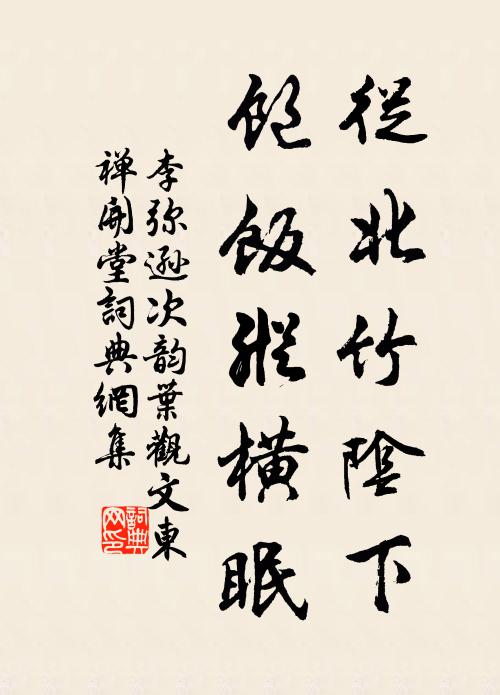 從北竹陰下
飽飯縱橫眠
李弥遜次韵葉觀文東
禅開堂詞典網集
詞典網印